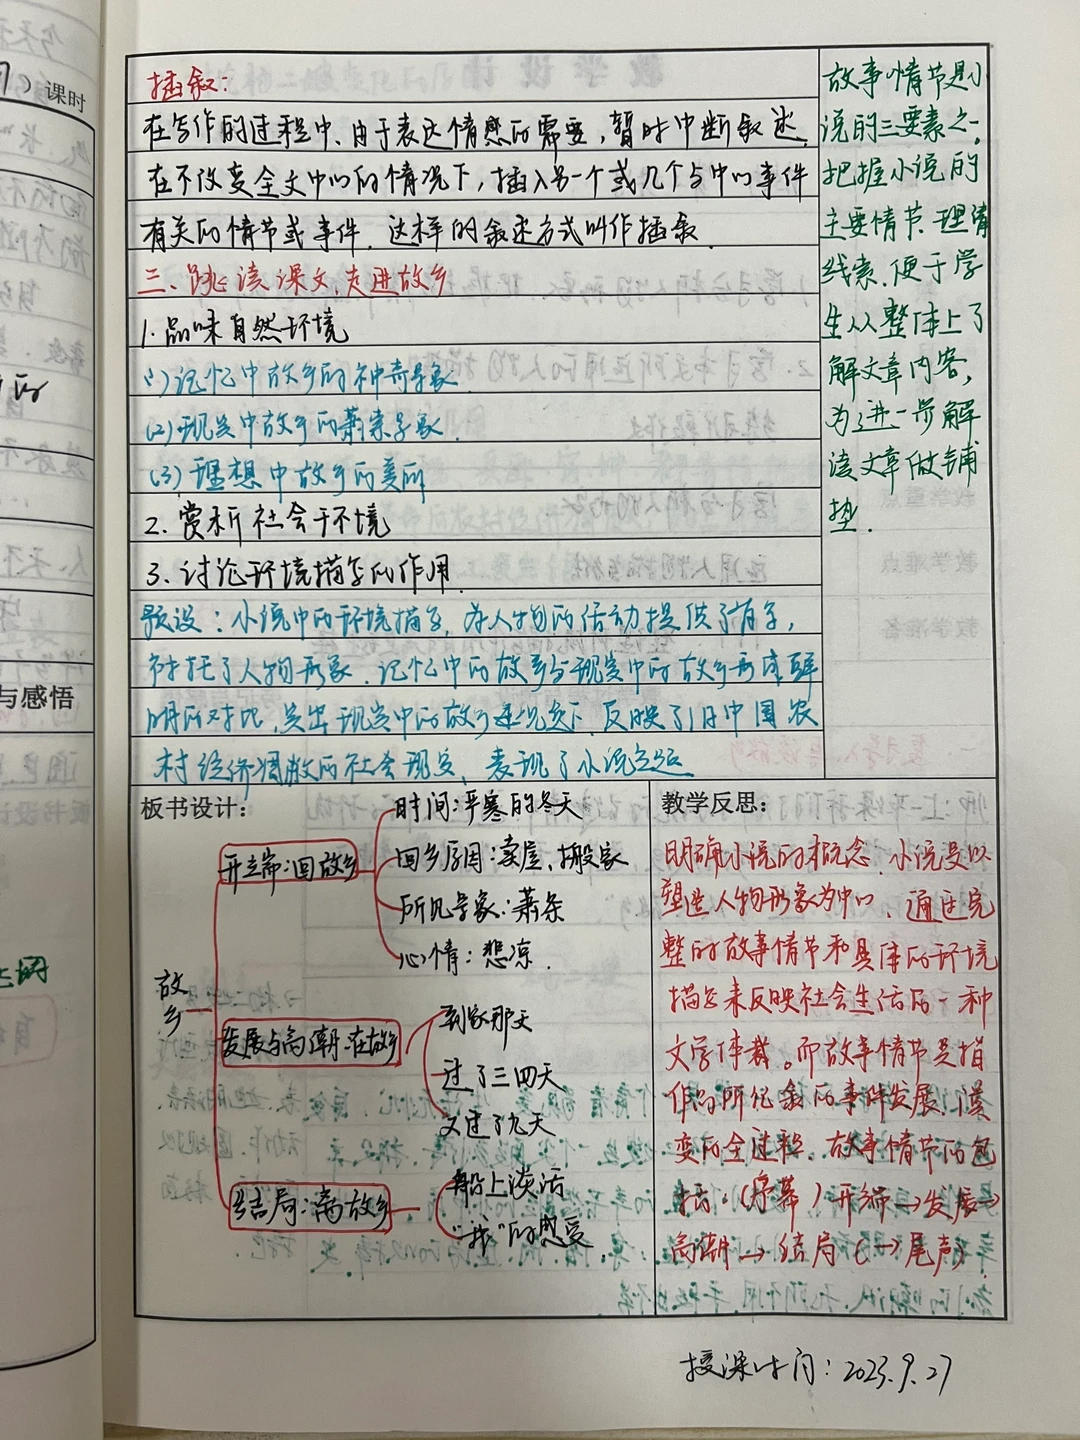 插叙:
在写作的过程中、由于表达情感的需要,暂时中断叙述.
在不改变全文中心的情况下,插入另一个或几个与中心事件
有关的情节或事件.这样的叙述方式叫作插叙.
三、跳读课文,走进故乡
1.品味自然环境
(1)记忆中故乡的神奇景象
(2)现实中故乡的萧索景象.
(3)理想中故乡的美丽
2.赏析社会环境
3.讨论环境描写的作用.
预设:小说中的环境描写,为人物的活动提供了背景,
衬托了人物形象.记忆中的故乡与现实中的故乡形成鲜
明的对比,突出现实中的故乡每况愈下.反映了旧中国农
村经济凋敝的社会现实,表现了小说主题.
故事情节是小
说的三要素之一,
把握小说的
主要情节.理清
线索.便于学
生从整体上了
解文章内容,
为进一步解
读文章做铺
垫.
板书设计:
故乡
开端:回故乡
时间:严寒的冬天
回乡原因:卖屋,搬家
所见景象:萧条
心情:悲凉.
发展与高潮:在故乡
到家那天
过了三四天
又过了九天
结局:离故乡
船上谈话
"我"的感受.
教学反思:
明确小说的概念.小说是以
塑造人物形象为中心,通过完
整的故事情节和具体的环境
描写来反映社会生活的一种
文学体裁。而故事情节是指
作品所记叙的事件发展、演
变的全过程.故事情节的包
括:(序幕)开端→发展→
高潮→结局(→尾声).
授课时间:2023.9.27
)课时
与感悟